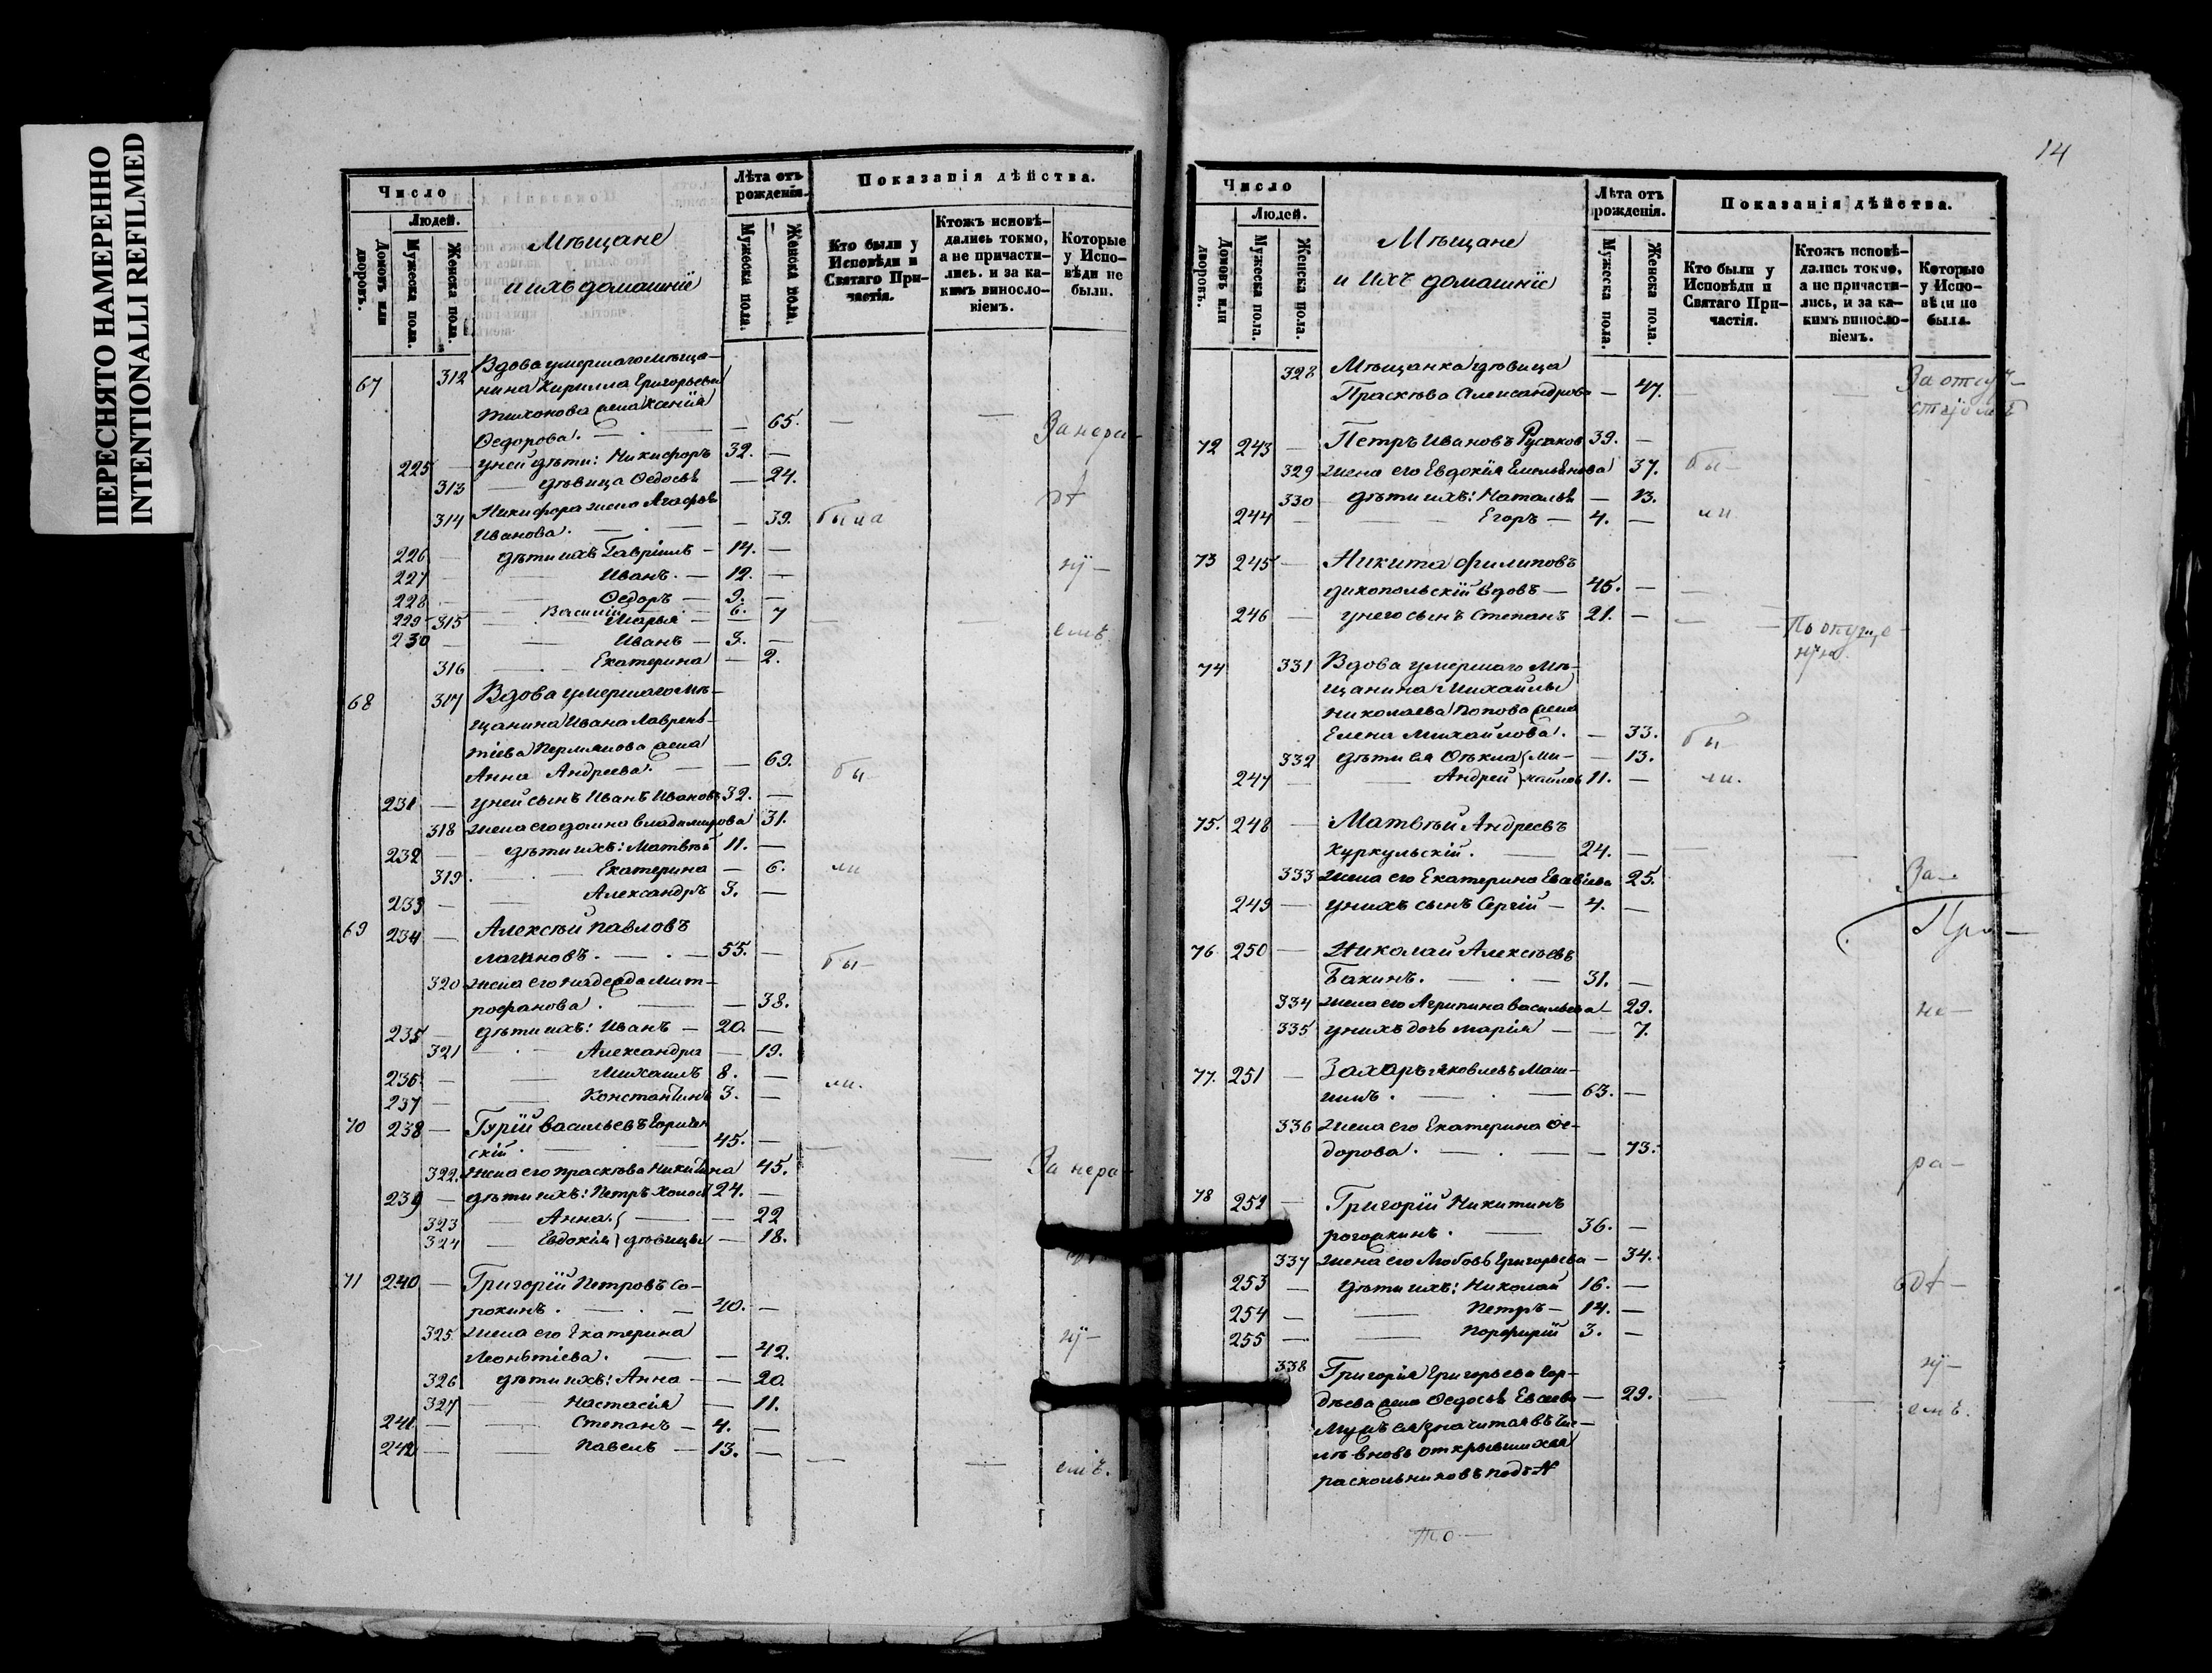 ПЕРЕСНЯТО НАМЕРЕННО
INTENTIONALLI REFILMED
Число
Людей.
Домовъ или дворовъ.
Мужеска пола.
Женска пола.
Мѣщане
и ихъ домашнiе
Лѣта отъ рожденiя.
Мужеска пола.
Женска пола.
Показанiя дѣйства.
Кто были у Исповѣди и Святаго Причастiя.
Ктожъ исповѣдались токмо, а не причастились. и за какимъ винословiемъ.
Которые у Исповѣди не были.
67 312 Вдова умершаго мѣща-
нина Кирилла Григорьева
Тихонова жена Ксенiя
Ѳедорова. — 65. За нера-
225 — у ней дѣти: Никифоръ 32. —
313 — дѣвица Ѳедосья — 24.
314 Никифора жена Агафья
Иванова. — 39. была
226 — дѣти ихъ Гаврiилъ — 14. —
227 — Иванъ. — 12. — нi-
228 — Ѳедоръ — 9. —
Василiй 6.
229 315 Марья — 7
230 — Иванъ — 3. — емъ
316 Екатерина — 2.
68 317 Вдова умершаго мѣ-
щанина Ивана Лаврень-
тiева жена
Анна Андреева. — 69. бы-
231 — у ней сынъ Иванъ Ивановъ 32. —
318 жена его Домна Владимирова 31.
232 — дѣти ихъ: Матвѣй 11. —
319 — Екатерина — 6. ли
233 — Александръ 3. —
69 234 — Алексѣй Павловъ
Логиновъ. — 55. — бы-
320 жена его Надежда Мит-
рофанова. — 38.
235 — дѣти ихъ: Иванъ — 20. —
321 Александра — 19.
236 — Михаилъ 8. — ли.
237 — Константинъ 3. —
70 238 — Гурiй Васильевъ
скiй. — 45. —
322. жена его Прасковья Никитина 45. За нера-
239 — дѣти ихъ: Петръ холостъ 24. —
323 — Анна — 22
324 — Евдокiя дѣвицы — 18.
71 240 — Григорiй Петровъ Со-
рокинъ. — 40. —
325 жена его Екатерина нi-
Леонтiева. — 42.
326 дѣти ихъ: Анна — 20
327 — Настасiя — 11.
241 — Степанъ — 4. —
242 — Павелъ — 13. — емъ.
14
Число
Людей.
Домовъ или дворовъ.
Мужеска пола.
Женска пола.
Мѣщане
и ихъ домашнiе
Лѣта отъ рожденiя.
Мужеска пола.
Женска пола.
Показанiя дѣйства.
Кто были у Исповѣди и Святаго Причастiя.
Ктожъ исповѣдались токмо, а не причастились, и за какимъ винословiемъ.
Которые у Исповѣди не были.
328 Мѣщанка дѣвица За отсут-
Прасковья Александрова — 47. ствiемъ
72 243 — Петръ Ивановъ Русаков 39. —
329 жена его Евдокiя Емельянова 37. бы-
330 — дѣти ихъ: Наталья — 13.
244 — Егоръ — 4. — ли.
73 245 — Никита Филиповъ
Никопольскiй вдовъ — 45. —
246 — у него сынъ Степанъ 21. — По опуще-
нiю.
74 331 Вдова умершаго мѣ-
щанина Михайлы
Николаева Попова жена
Елена Михайлова. — 33. бы-
332 дѣти ея Ѳекла Ми- — 13.
247 — Андрей хайловы 11. — ли.
75. 248 — Матвѣй Андреевъ
Куркульскiй. — 24. —
333 жена его Екатерина 25. За-
249 — у нихъ сынъ Сергiй — 4. —
76 250 — Николай Алексѣевъ
Бакинъ. — 31. —
334 жена его Агрипина Васильева — 29. не-
335 у нихъ дочь Марiя — 7.
77. 251 — Захаръ Яковлевъ
— 63. —
336 жена его Екатерина Ѳе-
дорова. — 73. ра-
78 252 — Григорiй Никитинъ
Рогожкинъ. — 36. —
337 жена его Любовь Григорьева — 34.
253 — дѣти ихъ: Николай 16. — дѣ-
254 — Петръ — 14. —
255 — Порфирiй 3. —
338 Григорiя Григорьева Гор- нi-
дѣева жена Ѳедосья — 29. емъ.
Мужъ ея значится въ чис-
лѣ вновь открывшихся
раскольниковъ подъ N
То-